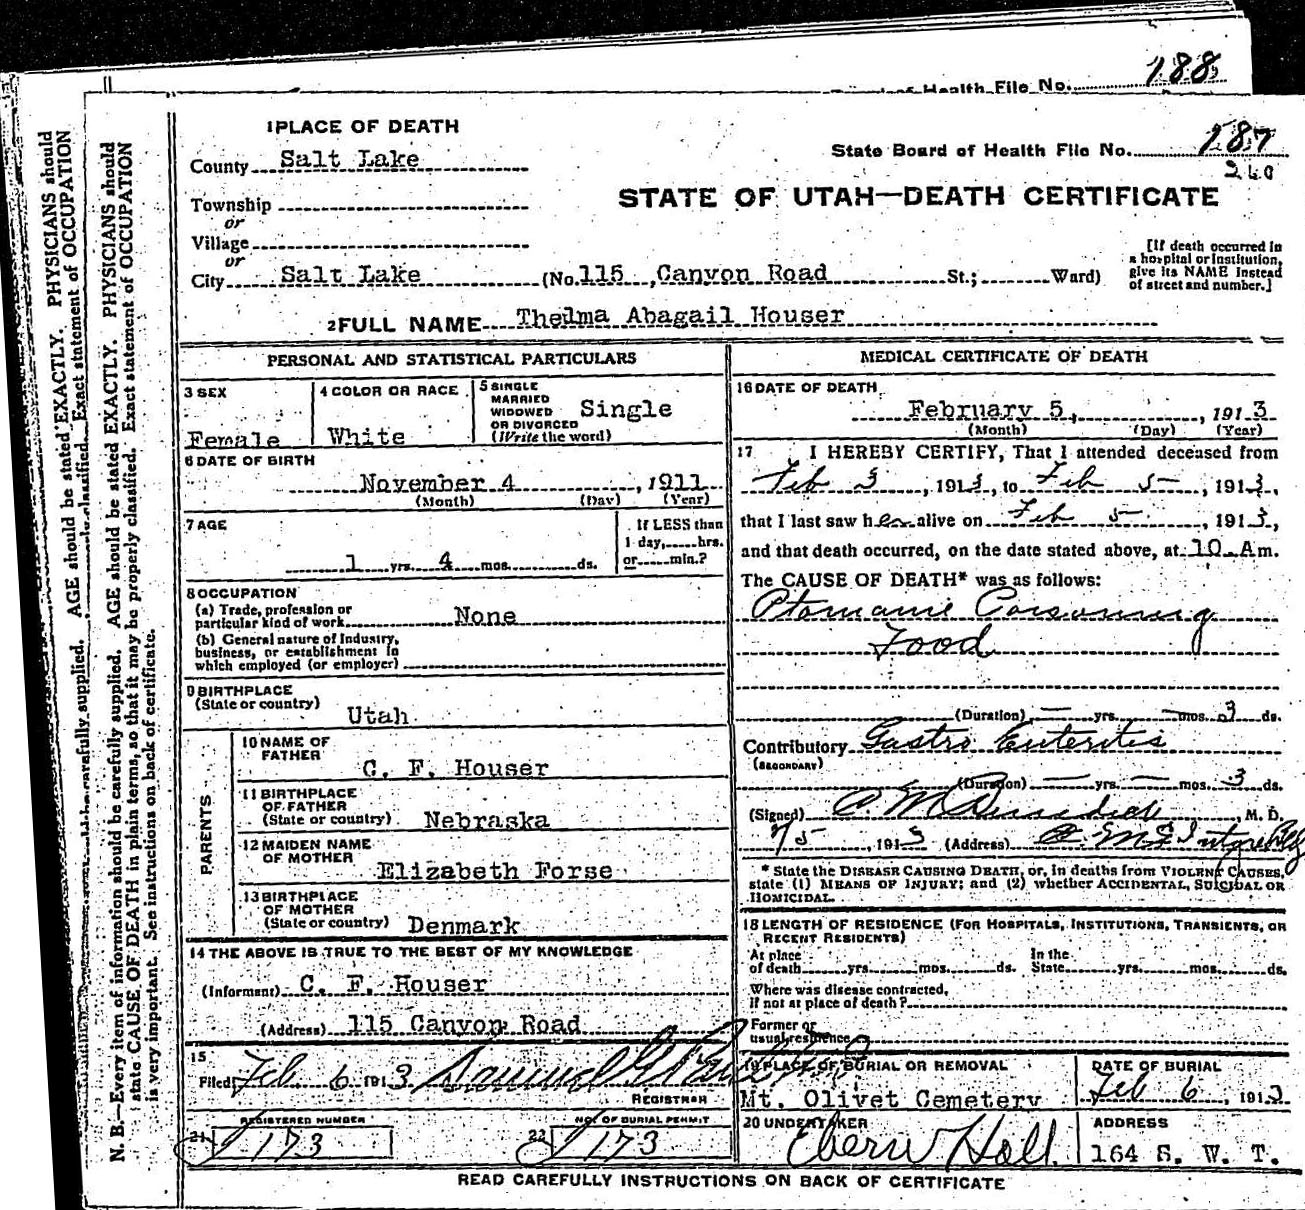 188
Health File No.
1 PLACE OF DEATH
County Salt Lake
State Board of Health File No. 187
240
Township
or
Village
or
City Salt Lake (No. 115, Canyon Road St.; Ward)
STATE OF UTAH—DEATH CERTIFICATE
[If death occurred in
a hospital or institution,
give its NAME instead
of street and number.]
2 FULL NAME Thelma Abagail Houser
PERSONAL AND STATISTICAL PARTICULARS
3 SEX
Female
4 COLOR OR RACE
White
5 SINGLE
MARRIED
WIDOWED
OR DIVORCED
(Write the word)
Single
6 DATE OF BIRTH
November 4, 1911
(Month) (Day) (Year)
7 AGE
1 yrs. 4 mos. ds.
If LESS than
1 day, hrs.
or min.?
8 OCCUPATION
(a) Trade, profession or
particular kind of work None
(b) General nature of Industry,
business, or establishment in
which employed (or employer)
9 BIRTHPLACE
(State or country)
Utah
PARENTS
10 NAME OF
FATHER
C. F. Houser
11 BIRTHPLACE
OF FATHER
(State or country) Nebraska
12 MAIDEN NAME
OF MOTHER
Elizabeth Forse
13 BIRTHPLACE
OF MOTHER
(State or country) Denmark
14 THE ABOVE IS TRUE TO THE BEST OF MY KNOWLEDGE
(Informant) C. F. Houser
(Address) 115 Canyon Road
15
Filed Feb 6 1913 Samuel
REGISTRAR
REGISTERED NUMBER
21 173
NO. OF BURIAL PERMIT
22 173
MEDICAL CERTIFICATE OF DEATH
16 DATE OF DEATH
February 5, , 1913
(Month) (Day) (Year)
17 I HEREBY CERTIFY, That I attended deceased from
Feb 3, 1913, to Feb 5, 1913,
that I last saw her alive on Feb 5, 1913,
and that death occurred, on the date stated above, at 10 Am.
The CAUSE OF DEATH* was as follows:
Ptomanie Poisoning
Food
(Duration) — yrs. — mos. 3 ds.
Contributory Gastro Enteritis
(SECONDARY)
(Duration) — yrs. — mos. 3 ds.
(Signed) , M. D.
, 1913 (Address)
* State the DISEASE CAUSING DEATH, or, in deaths from VIOLENT CAUSES,
state (1) MEANS OF INJURY; and (2) whether ACCIDENTAL, SUICIDAL OR
HOMICIDAL.
18 LENGTH OF RESIDENCE (FOR HOSPITALS, INSTITUTIONS, TRANSIENTS, OR
RECENT RESIDENTS)
At place
of death yrs. mos. ds.
In the
State yrs. mos. ds.
Where was disease contracted,
if not at place of death?
Former or
usual residence
19 PLACE OF BURIAL OR REMOVAL
Mt. Olivet Cemetery
DATE OF BURIAL
Feb 6, 1913
20 UNDERTAKER
Eber W Hall
ADDRESS
164 S. W. T.
READ CAREFULLY INSTRUCTIONS ON BACK OF CERTIFICATE
AGE should be stated EXACTLY. PHYSICIANS should
Exact statement of OCCUPATION
N. B.—Every item of information should be carefully supplied. AGE should be stated EXACTLY. PHYSICIANS should
state CAUSE OF DEATH in plain terms, so that it may be properly classified. Exact statement of OCCUPATION
is very important. See instructions on back of certificate.